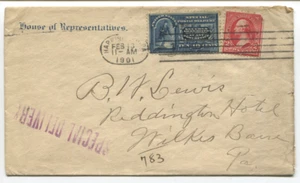 House of Representatives.
FEB 12
AM
1901
SPECIAL
B. W. Lewis
Reddington Hotel
Wilkes Barre
Pa
783
SPECIAL DELIVERY